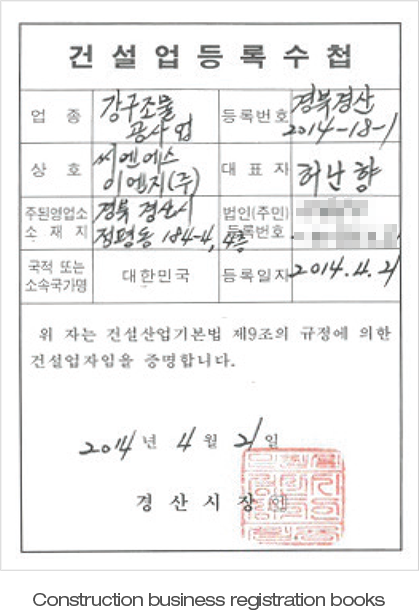 건설업등록수첩
업 종
강구조물
공사업
등록번호
경북경산
2014-18-1
상 호
씨엔에스
이엔지(주)
대 표 자
허난향
주된영업소
소 재 지
경북 경산시
정평동 184-4, 4층
법인(주민)
등록번호
국적 또는
소속국가명
대한민국
등록일자
2014.4.21
위 자는 건설산업기본법 제9조의 규정에 의한
건설업자임을 증명합니다.
2014 년 4 월 21 일
경 산 시 장 인
Construction business registration books